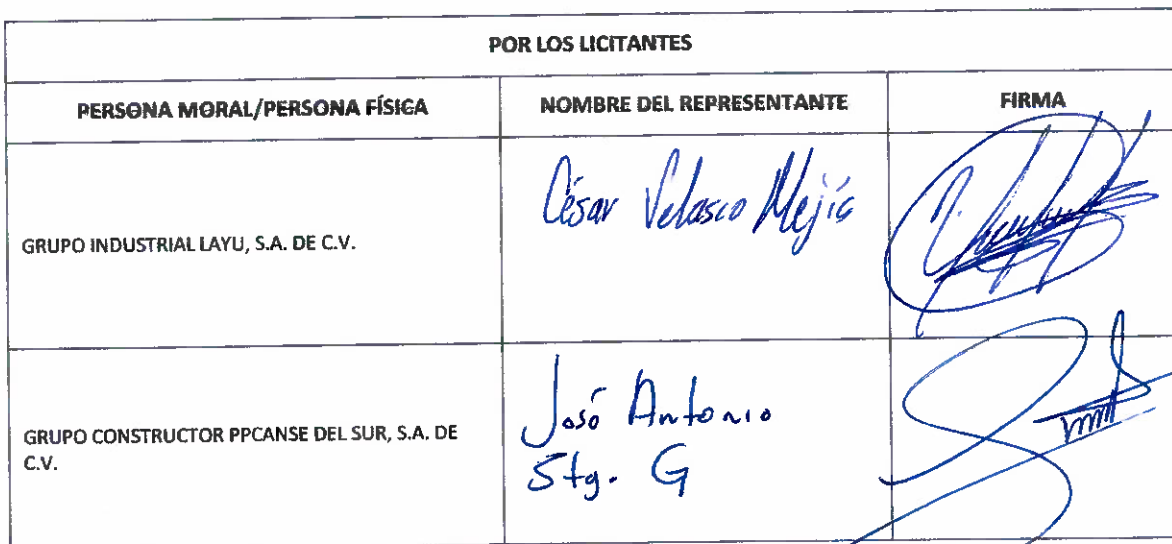 POR LOS LICITANTES
PERSONA MORAL/PERSONA FÍSICA NOMBRE DEL REPRESENTANTE FIRMA
GRUPO INDUSTRIAL LAYU, S.A. DE C.V. César Velasco Mejía
GRUPO CONSTRUCTOR PPCANSE DEL SUR, S.A. DE
C.V.
José Antonio
Stg. G